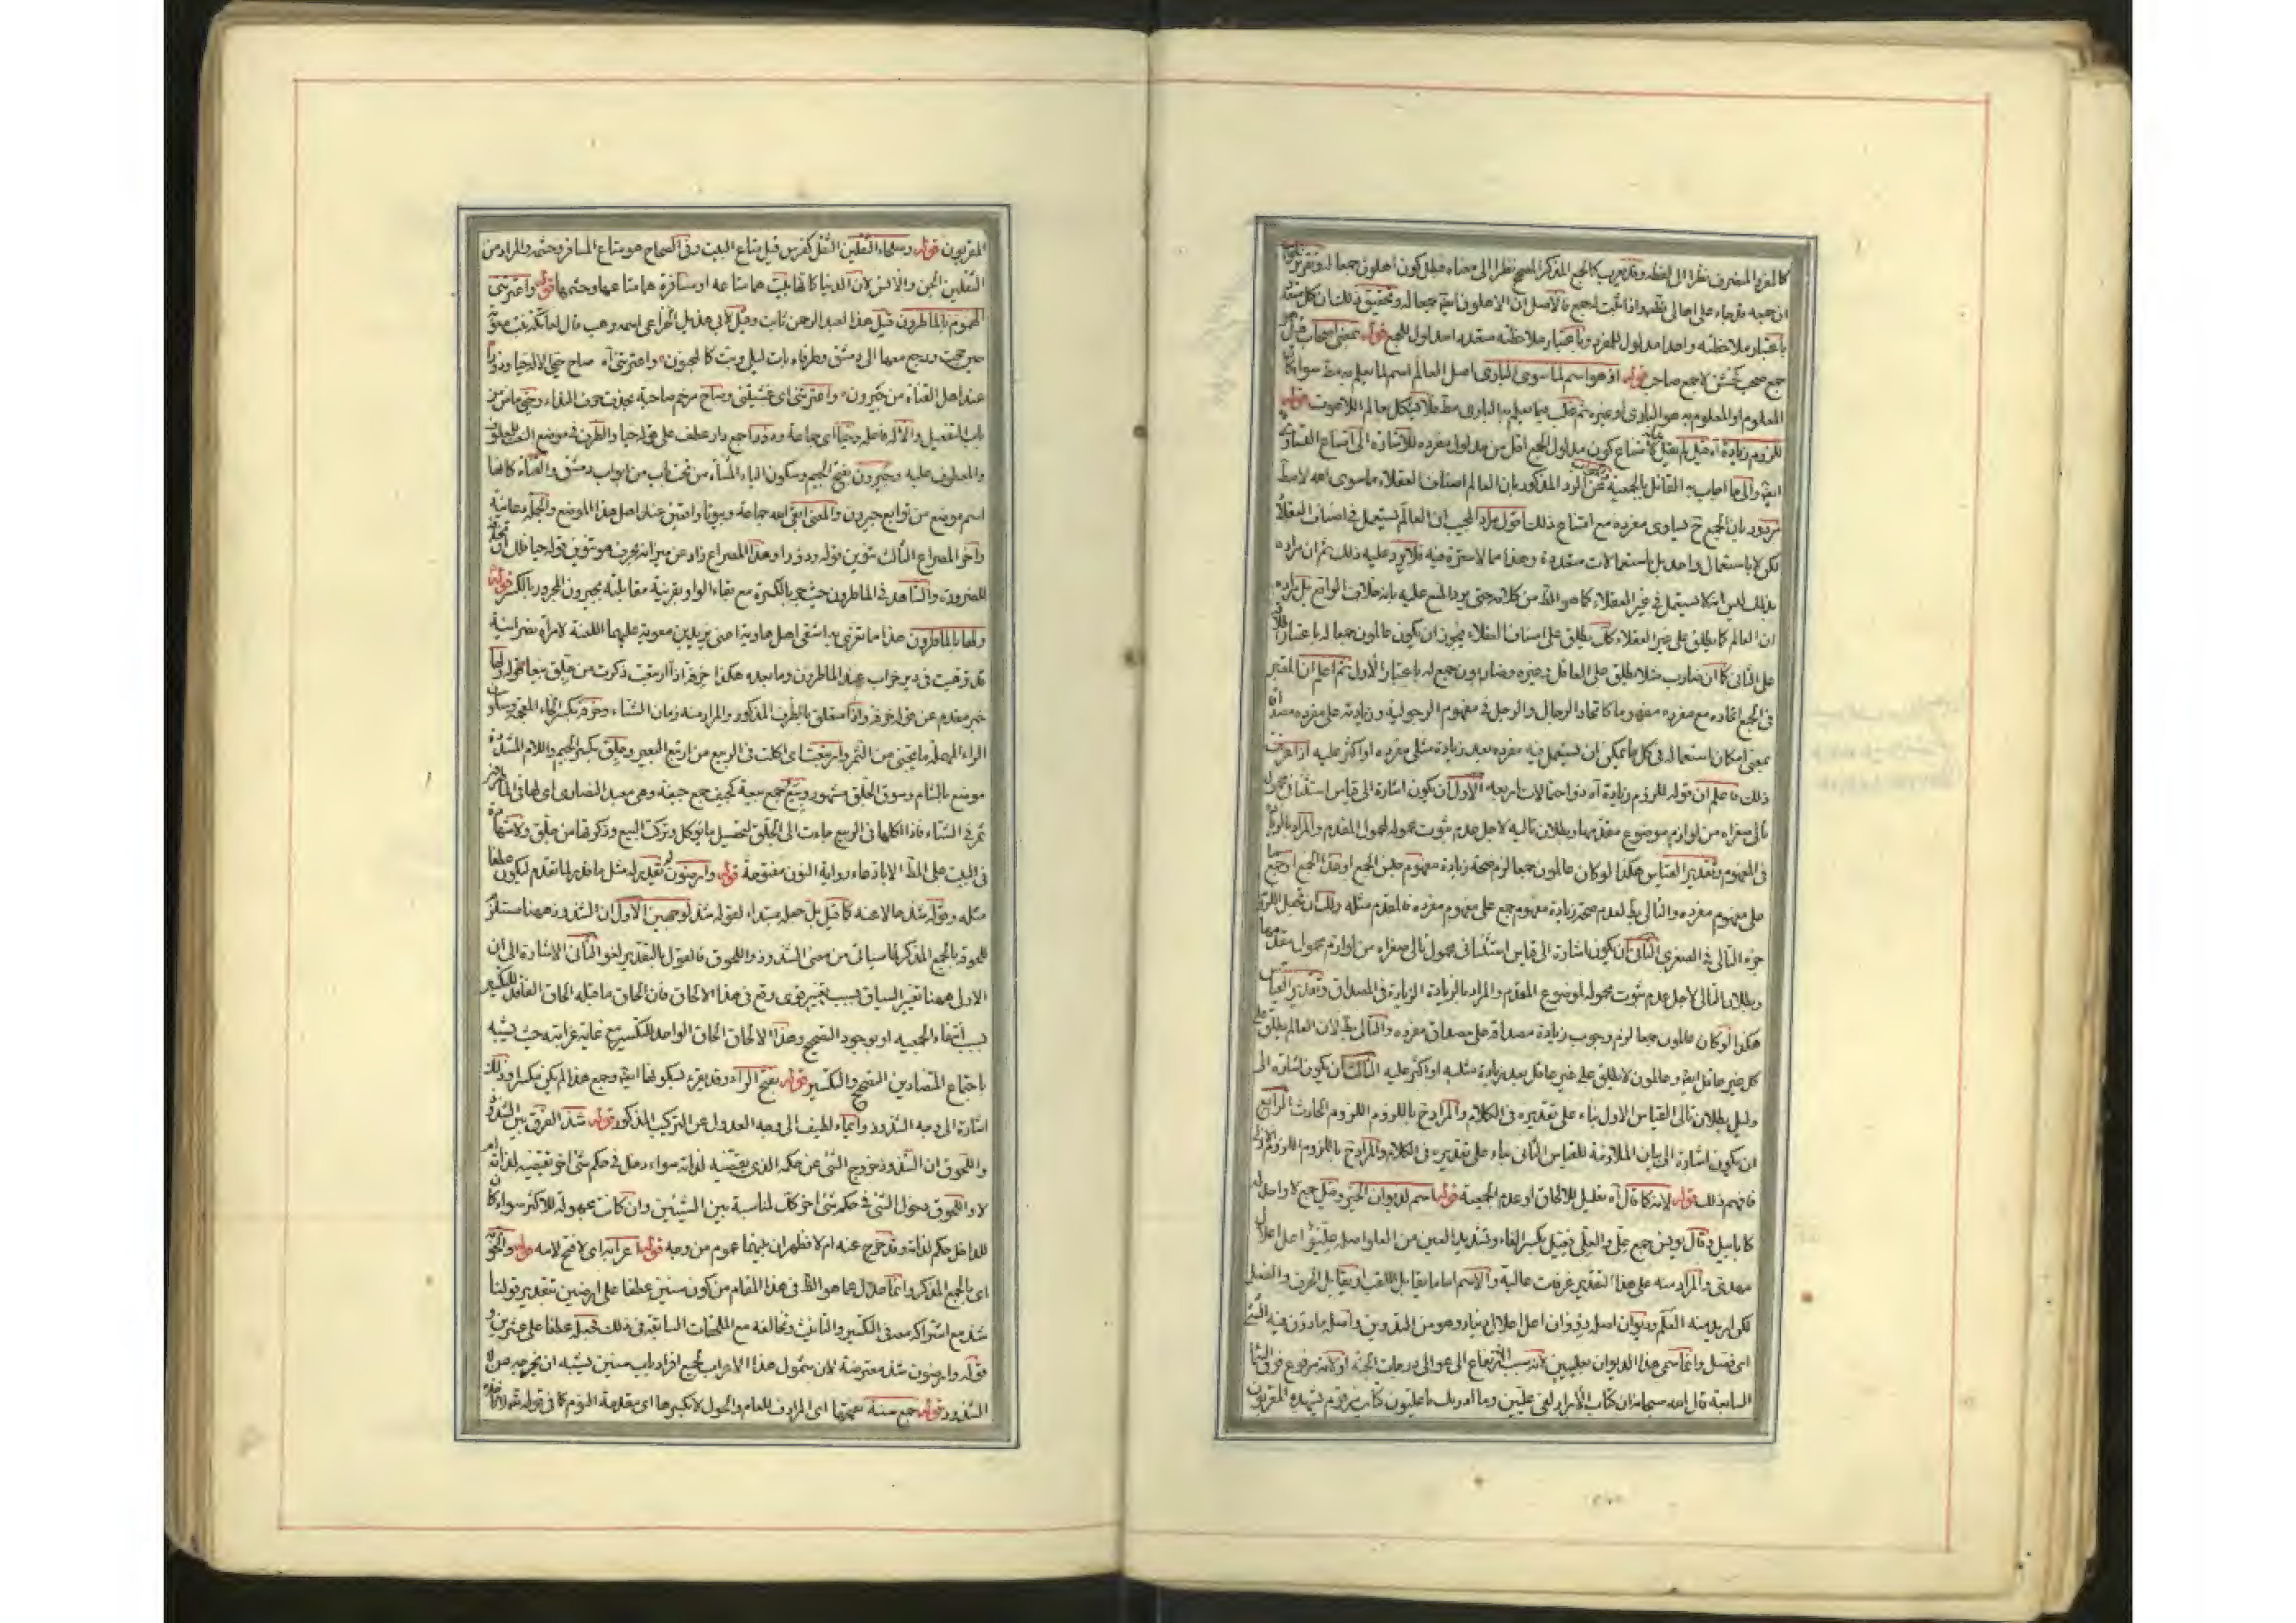 كالمفرد المنصرف نظرا الى لفظه وقد يعرب كالجمع المذكر المصحح نظرا الى معناه فبطل كون اهلون جمعا له وتقرير
ان جمعه قد جاء على اهالى واذا ثبت له جمع فالاصل ان الاهلون ايضا جمعا له وتحقيق ذلك ان كل متعدد
باعتبار ملاحظته واحدا مدلول للمفرد وباعتبار ملاحظته متعددا مدلول للجمع قوله بمعنى اصحاب قيل هو
جمع صحب كخشن لا جمع صاحب قوله اذ هو اسم لما سوى البارى اصل العالم اسم لما يعلم به مط سواء كان
المعلوم او المعلوم به هو البارى او غيره ثم غلب فيما يعلم به البارى مط فلا يقال عالم اللاهوت قوله
للزوم زيادة آه قيل لم يقل لامتناع كون مدلول الجمع اقل من مدلول مفرده للاشارة الى امتناع التساوى
ايضا والى ما اجاب به القائل بالجمعية عن الرد المذكور بان العالم اصناف العقلاء ما سوى الله لا مط
مردود بان الجمع ح يساوى مفرده مع امتناع ذلك اقول مراد المجيب ان العالم يستعمل فى اصناف العقلاء
لكن لا باستعمال واحد بل باستعمالات متعددة وهذا مما لا سترة فيه فلا يرد عليه ذلك ثم ان مراده
بذلك ليس انه لا يستعمل فى غير العقلاء كما هو الظ من كلامه حتى يرد المنع عليه بانه خلاف الواقع بل مراده
ان العالم كما يطلق على غير العقلاء كك يطلق على اصناف العقلاء فيجوز ان يكون عالمون جمعا له باعتبار
على الثانى كما ان ضارب مثلا يطلق على العاقل وغيره وضاربون جمع له باعتبار الاول ثم اعلم ان المعتبر
فى الجمع اتحاده مع مفرده مفهوما كاتحاد الرجال والرجل فى مفهوم الرجولية وزيادته على مفرده مصداقا
بمعنى امكان استعماله فى كل ما يمكن ان يستعمل فيه مفرده بعد زيادة مثلى مفرده او اكثر عليه اذا عرفت
ذلك فاعلم ان قوله للزوم زيادة آه ذو احتمالات اربعة الاول ان يكون اشارة الى قياس استثنائى محمول
تالى صغراه من لوازم موضوع مقدمها وبطلان تاليه لاجل عدم ثبوت محموله لمحمول المقدم والمراد بالزيادة
فى المفهوم وتقدير القياس هكذا لو كان عالمون جمعا لزم صحة زيادة مفهوم جنس الجمع او هذا الجمع او جمع
على مفهوم مفرده والتالى بط لعدم صحة زيادة مفهوم جمع على مفهوم مفرده فالمقدم مثله ولك ان تجعل اللزوم
جزء التالى فى الصغرى الثانى ان يكون اشارة الى قياس استثنائى محمول تالى صغراه من لوازم محمول مقدمها
وبطلان التالى لاجل عدم ثبوت محموله لموضوع المقدم والمراد بالزيادة الزيادة فى المصداق وتقدير القياس
هكذا لو كان عالمون جمعا لزم وجوب زيادة مصداقه على مصداق مفرده والتالى بط لان العالم يطلق على
كل غير عاقل ايضا وعالمون لا يطلق على غير عاقل بعد زيادة مثليه او اكثر عليه الثالث ان يكون اشارة الى
دليل بطلان تالى القياس الاول بناء على تقديره فى الكلام والمراد ح باللزوم اللزوم الحادث الرابع
ان يكون اشارة الى بيان الملازمة للقياس الثانى بناء على تقديره فى الكلام والمراد ح باللزوم اللزوم
فافهم ذلك قوله لانه كما قال آه تعليل للالحاق او عدم الجمعية قوله اسم لديوان الخير وقيل جمع لا واحد له
كابابيل وقال يونس جمع علّى والعلّى فعيل بكسر الفاء وتشديد العين من العلو اصله عليو اعل اعلال
مهدى والمراد منه على هذا التقدير غرفات عالية والاسم اما ما يقابل اللقب او يقابل الحرف والفعل
لكن اريد منه العلم وديوان اصله دوّوان اعل اعلال دينار وهو من التدوين واصله ما دوّن فيه الشئ
اى فصل وانما سمى هذا الديوان بعليين لانه سبب الارتفاع الى عوالى درجات الجنة او لانه مرفوع فوق السماء
السابعة قال الله سبحانه ان كتاب الابرار لفى عليين وما ادريك ما عليون كتاب مرقوم يشهده المقربون
المقربون قوله وسماء الثقلين الثقل كفرس قيل متاع البيت وفى الصحاح هو متاع المسافر وحشمه والمراد من
الثقلين الجن والانس لان الدنيا كانها بيت هما متاعه او مسافرة هما متاعها وحشمها قوله واعترتنى
الهموم بالماطرون قيل هذا لعبد الرحمن ثابت وقيل لابى هذيل الخزاعى اسمه وهب قال لعاتكة بنت معوية
حين حجت ورجع معها الى دمشق وطرفاه بات ليلى وبت كالمجنون واعترتنى آه صاح حيّ الاله حيا ودورا
عند اصل القناة من جيرون واعترتنى اى غشيتنى وصاح مرخم صاحبه بحذف حرف النداء وحيّ ماض من
باب التفعيل والاله فاعله وحيا اى جماعة ودورا جمع دار عطف على قوله حيا والظرف فى موضع النعت للمعطوف
والمعطوف عليه وجيرون بفتح الجيم وسكون الياء المثناة من تحت باب من ابواب دمشق والقناة كانها
اسم موضع من توابع جيرون والمعنى ابقى الله جماعة وبيوتا واقعين عند اصل هذا الموضع والجملة دعائية
وآخر المصراع الثالث تنوين قوله ودورا وهذا المصراع زاد عن ميزانه بحرف هو تنوين قوله حيا
للضرورة والشاهد فى الماطرون حيث جر بالكسرة مع بقاء الواو بقرينة مقابلته بجيرون المجرور بالكسر قوله
ولها بالماطرون هذا ما تغزل به اشقى اهل هاوية اعنى يزيد بن معوية عليهما اللعنة لامرأة نصرانية
قد ترهبت فى دير خراب عند الماطرون وما بعده هكذا خرفة اذا ارتبعت ذكرت من جلق بيعا قوله ولها
خبر مقدم عن قوله خرفة واذا متعلق بالظرف المذكور والمراد منه زمان الشتاء وخرفة بكسر الخاء المعجمة وسكون
الراء المهملة ما يجتنى من الثمر وارتبعت اى اكلت فى الربيع من ارتبع البعير وجلق بكسر الجيم واللام المشددة
موضع بالشام وسوق الجلق مشهور وبيع جمع بيعة كجيف جمع جيفة وهى معبد النصارى اى لها فى الماطرون
ثمر فى الشتاء فاذا اكلتها فى الربيع جاءت الى الجلق لتحصيل ما تؤكل وتركت البيع
فى البيت على الظ الا باذعاء رواية النون مفتوحة قوله وارضون تقديره له مثل ما قدر لما تقدم ليكون عطفا
مثله وقوله شذ حالا عنه كما قيل بل جملة مبتداء لقوله شذ لوجهين الاول ان الشذوذ ههنا مستلزم
للحوقه بالجمع المذكر لما سياتى من معنى الشذوذ واللحوق فالقول بالتقدير لغو الثانى الاشارة الى ان
الاولى ههنا تغير السياق بسبب تغيير قوى وقع فى هذا الالحاق فان الحاق ما قبله الحاق الفاقد للتكسير
بسبب انتفاء الجمعية او بوجود التصحيح وهذا الالحاق الحاق الواجد للتكسير مع غاية غرابته حيث يشبه
باجتماع المتضادين التصحيح والتكسير قوله بفتح الراء وقد يقرء بسكونها ايضا وجمع هذا لم يكن مكسرا وذلك
اشارة الى وجه الشذوذ وايماء لطيف الى وجه العدول عن التركيب المذكور قوله شذ الفرق بين الشذوذ
واللحوق ان الشذوذ خروج الشئ عن حكمه الذى يقتضيه لذاته سواء دخل فى حكم شئ آخر يقتضيه لذاته ام
لا واللحوق دخول الشئ فى حكم شئ آخر كك لمناسبة بين الشيئين وان كانت مجهولة للاكثر سواء كان
للداخل حكم لذاته وقد خرج عنه ام لا فظهر ان بينهما عموم من وجه قوله اعرابه اى لا فتح لامه قوله والحق به
اى بالجمع المذكر وانما عدل عما هو الظ فى هذا المقام من كون سنين عطفا على ارضين بتقدير قولنا
شذ مع اشتراكه معه فى التكسير والتانيث وتخالفه مع الملحقات السابقة فى ذلك فجعله عطفا على عشرين و
قوله وارضون شذ معترضة لان شمول هذا الاعراب لجميع افراد باب سنين يشبه ان يخرجه من
الشذوذ قوله جمع سنة بفتحها اى المرادف للعام والحول لا بكسرها اى مقدمة النوم كما فى قوله تعالى